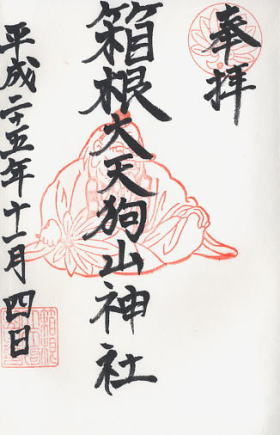 奉拝
箱根大天狗山神社
平成二十五年十一月四日